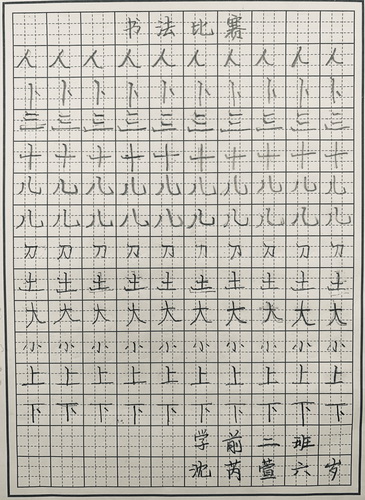 书法比赛
人人人人人人人人人人
卜卜卜卜卜卜卜卜卜卜
三三三三三三三三三三
十十十十十十十十十十
儿儿儿儿儿儿儿儿儿儿
儿儿儿儿儿儿儿儿儿儿
刀刀刀刀刀刀刀刀刀刀
土土土土土土土土土土
大大大大大大大大大大
小小小小小小小小小小
上上上上上上上上上上
下下下下下下下下下下
学前二班
沈芮萱六岁